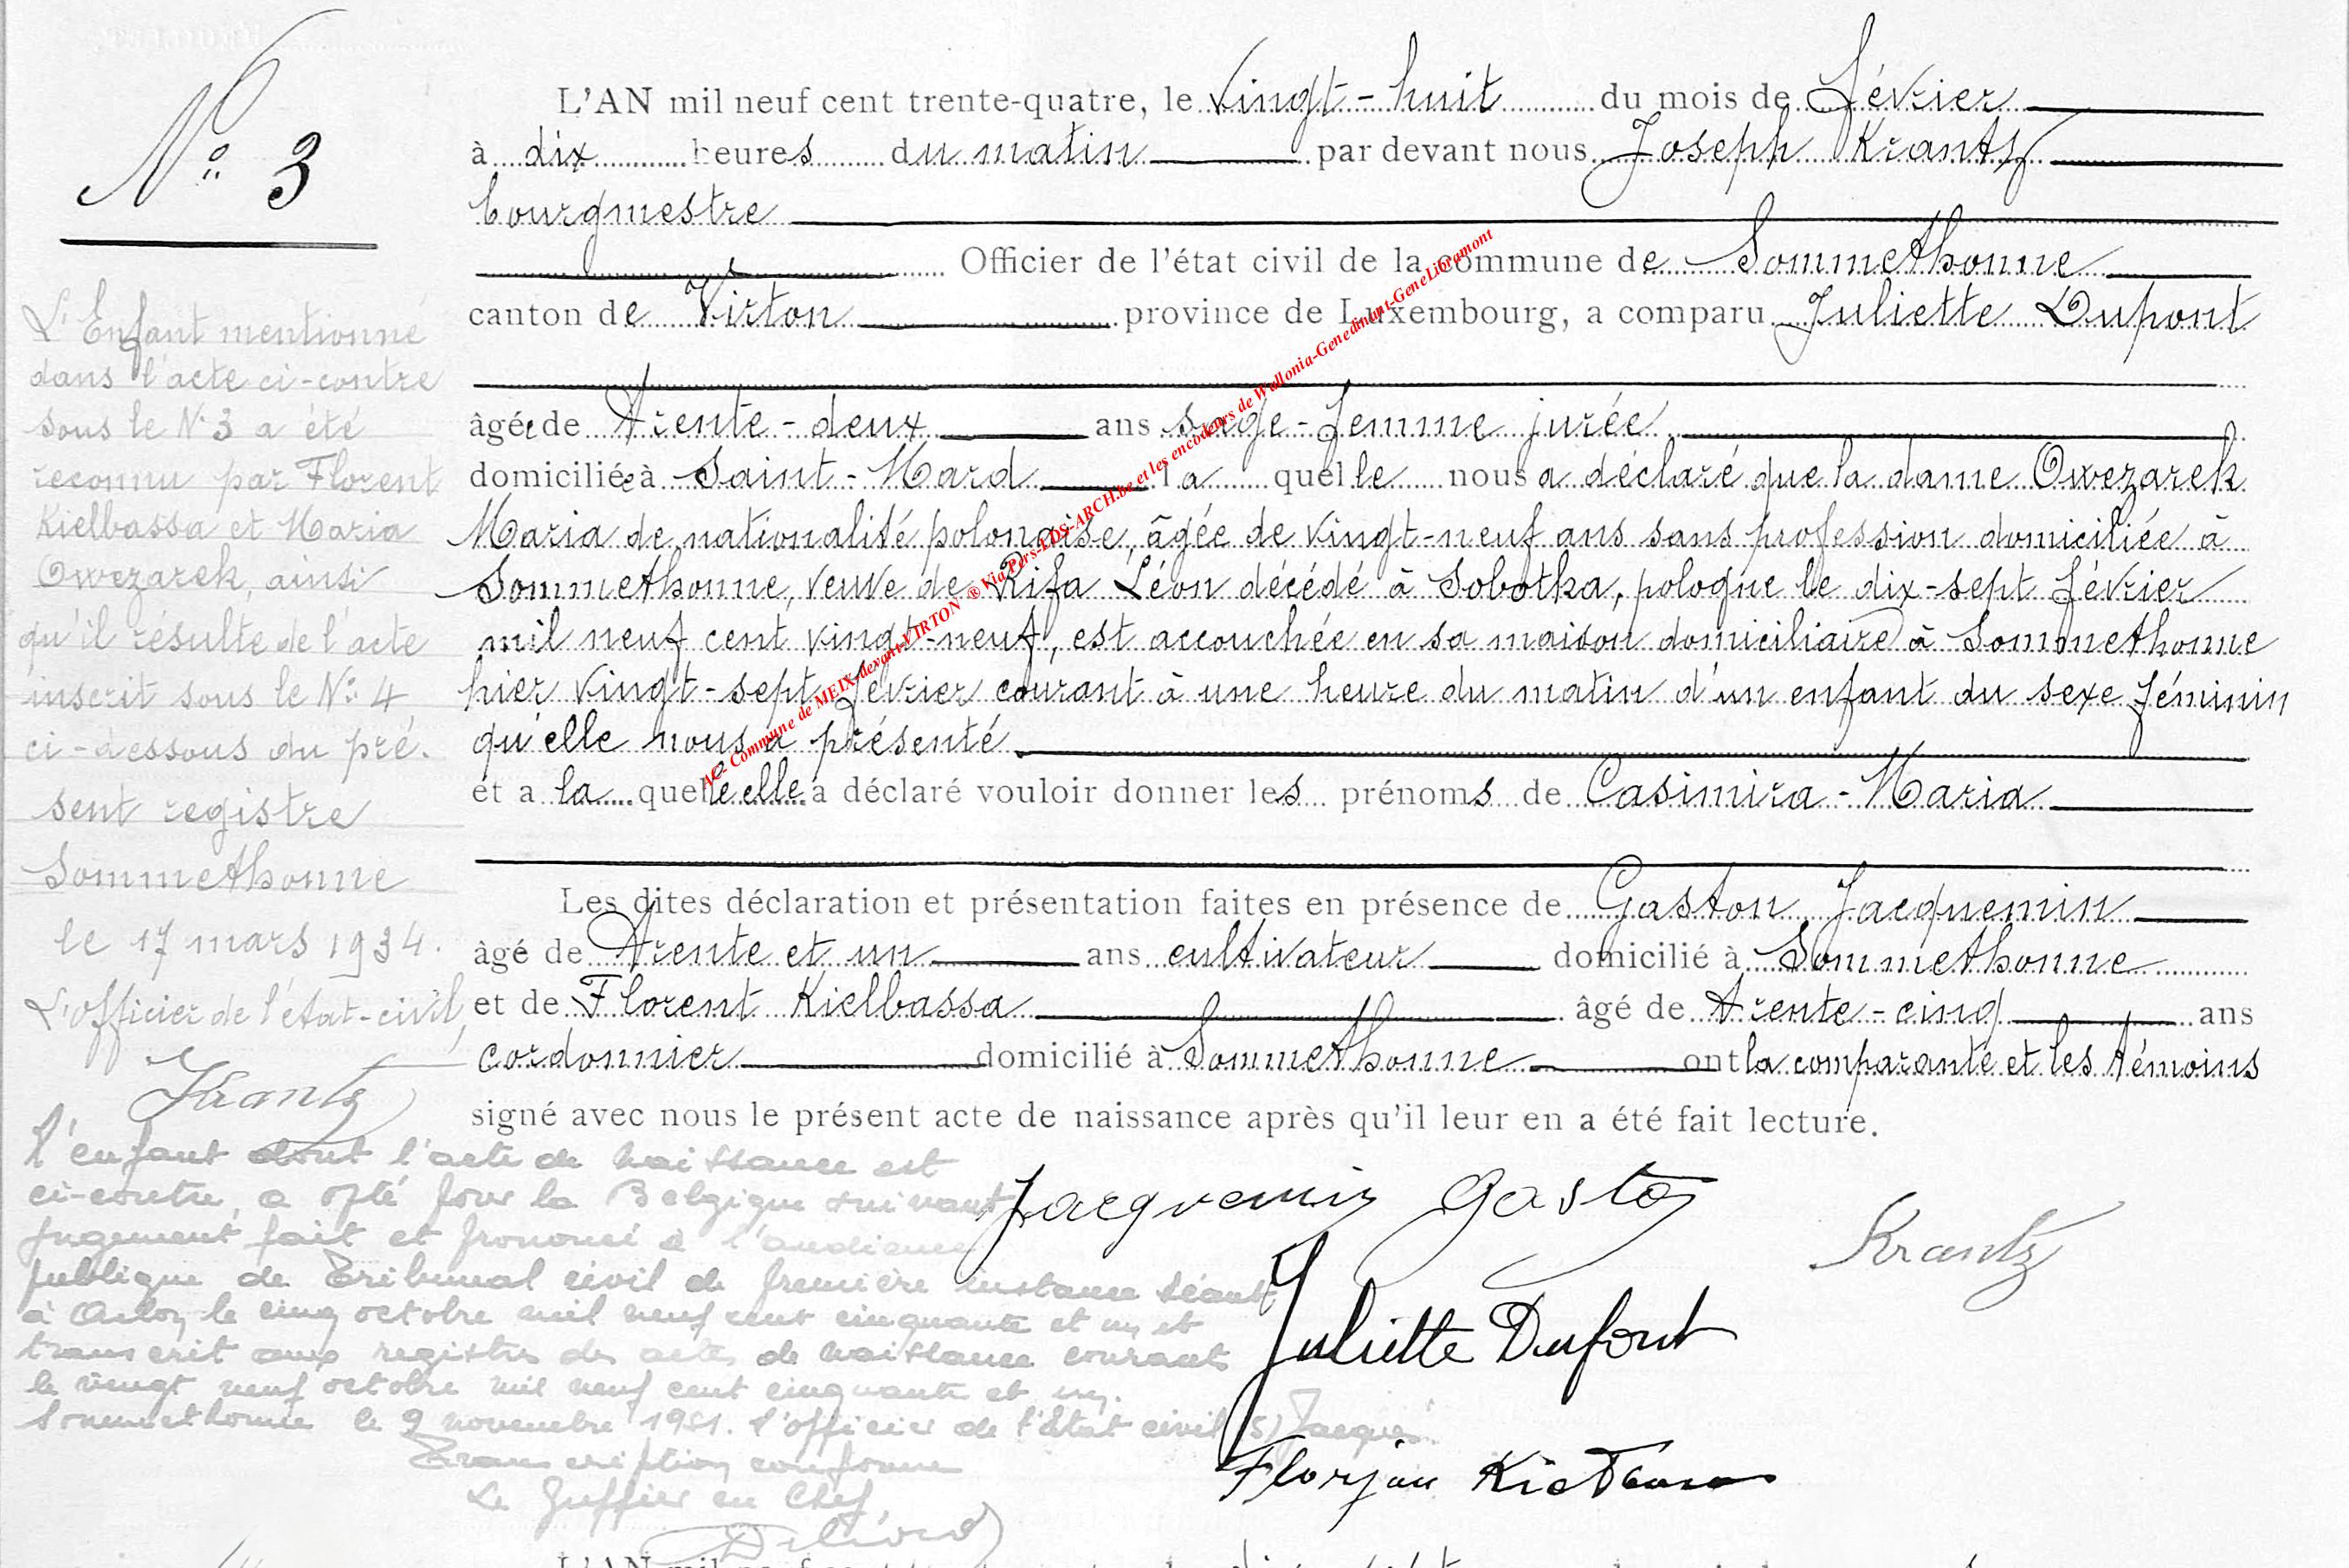 N° 3
L'AN mil neuf cent trente-quatre, le vingt-huit du mois de février
à dix heures du matin par devant nous Joseph Krantz
bourgmestre
Officier de l'état civil de la commune de Sommethonne
canton de Virton province de Luxembourg, a comparu Juliette Dupont
âgée de trente-deux ans sage-femme jurée
domiciliée à Saint-Mard laquelle nous a déclaré que la dame Owezarek
Maria de nationalité polonaise, âgée de vingt-neuf ans sans profession domiciliée à
Sommethonne, veuve de Rifa Léon décédé à Sobotka, pologne le dix-sept février
mil neuf cent vingt-neuf, est accouchée en sa maison domiciliaire à Sommethonne
hier vingt-sept février courant à une heure du matin d'un enfant du sexe féminin
qu'elle nous a présenté
et a laquelle elle a déclaré vouloir donner les prénoms de Casimira-Maria
Les dites déclaration et présentation faites en présence de Gaston Jacquemin
âgé de trente et un ans cultivateur domicilié à Sommethonne
et de Florent Kielbassa âgé de trente-cinq ans
cordonnier domicilié à Sommethonne ont la comparante et les témoins
signé avec nous le présent acte de naissance après qu'il leur en a été fait lecture.
Jacquemin Gaston
Krantz
Juliette Dupont
Florjan
L'Enfant mentionné
dans l'acte ci-contre
sous le N° 3 a été
reconnu par Florent
Kielbassa et Maria
Owezarek, ainsi
qu'il résulte de l'acte
inscrit sous le N° 4
ci-dessous du pré-
sent registre
Sommethonne
le 17 mars 1934.
L'officier de l'état-civil,
Krantz
L'enfant dont l'acte de naissance est
ci-contre, a opté pour la Belgique suivant
jugement fait et prononcé à l'audience
publique de Tribunal civil de première instance séant
à Arlon le cinq octobre mil neuf cent cinquante et un et
transcrit aux registres des actes de naissance courant
le vingt neuf octobre mil neuf cent cinquante et un.
Sommethonne le 9 novembre 1951. L'officier de l'Etat civil (s) Jacques
Transcription conforme
Le Greffier en Chef,
AC- Commune de MEIX-devant-VIRTON ® Via Pers-LDS-ARCH.be et les encodeurs de Wallonia-Genedinant-GeneLibramont
L'AN mil neuf